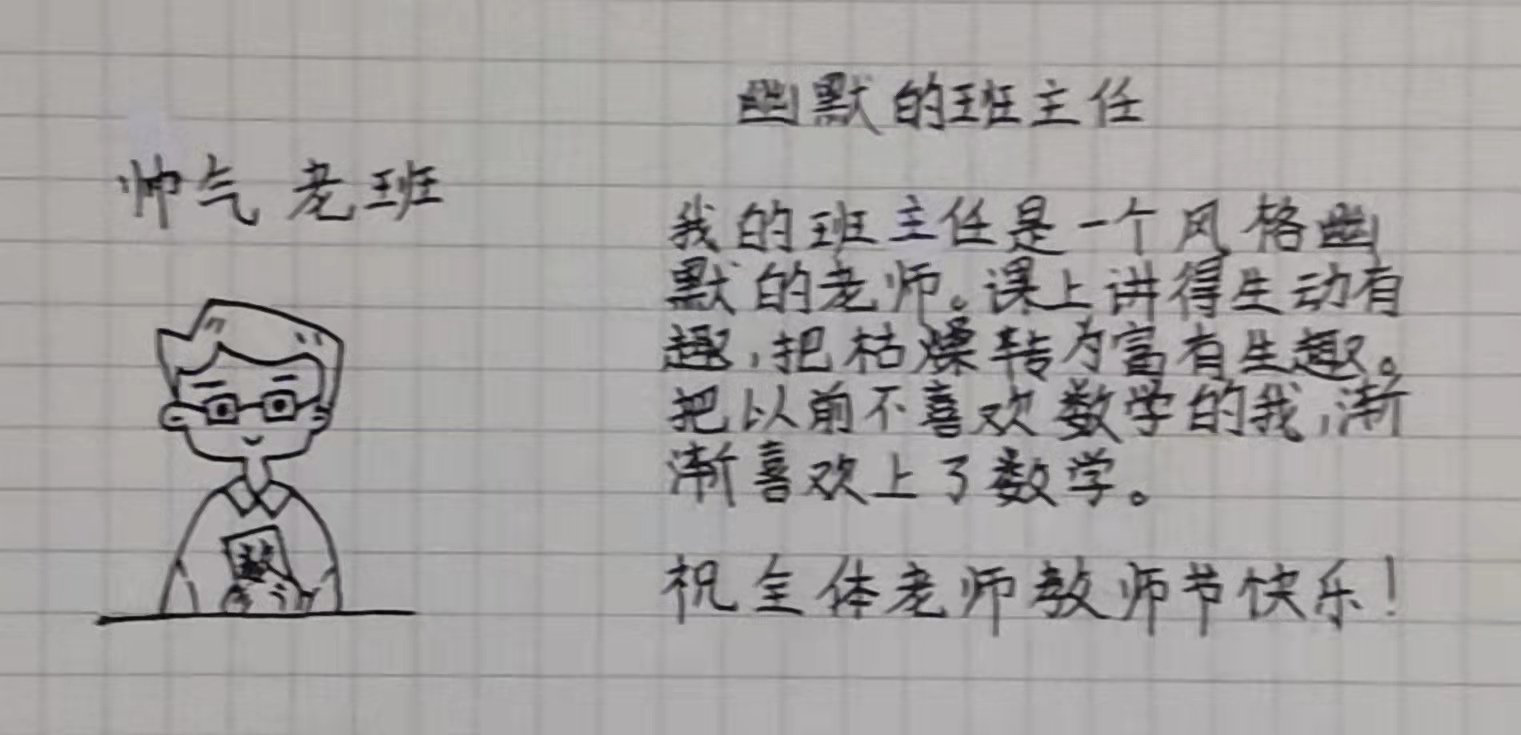 幽默的班主任
帅气 老班
我的班主任是一个风格幽
默的老师。课上讲得生动有
趣,把枯燥转为富有生趣。
把以前不喜欢数学的我,渐
渐喜欢上了数学。
数
祝全体老师教师节快乐!